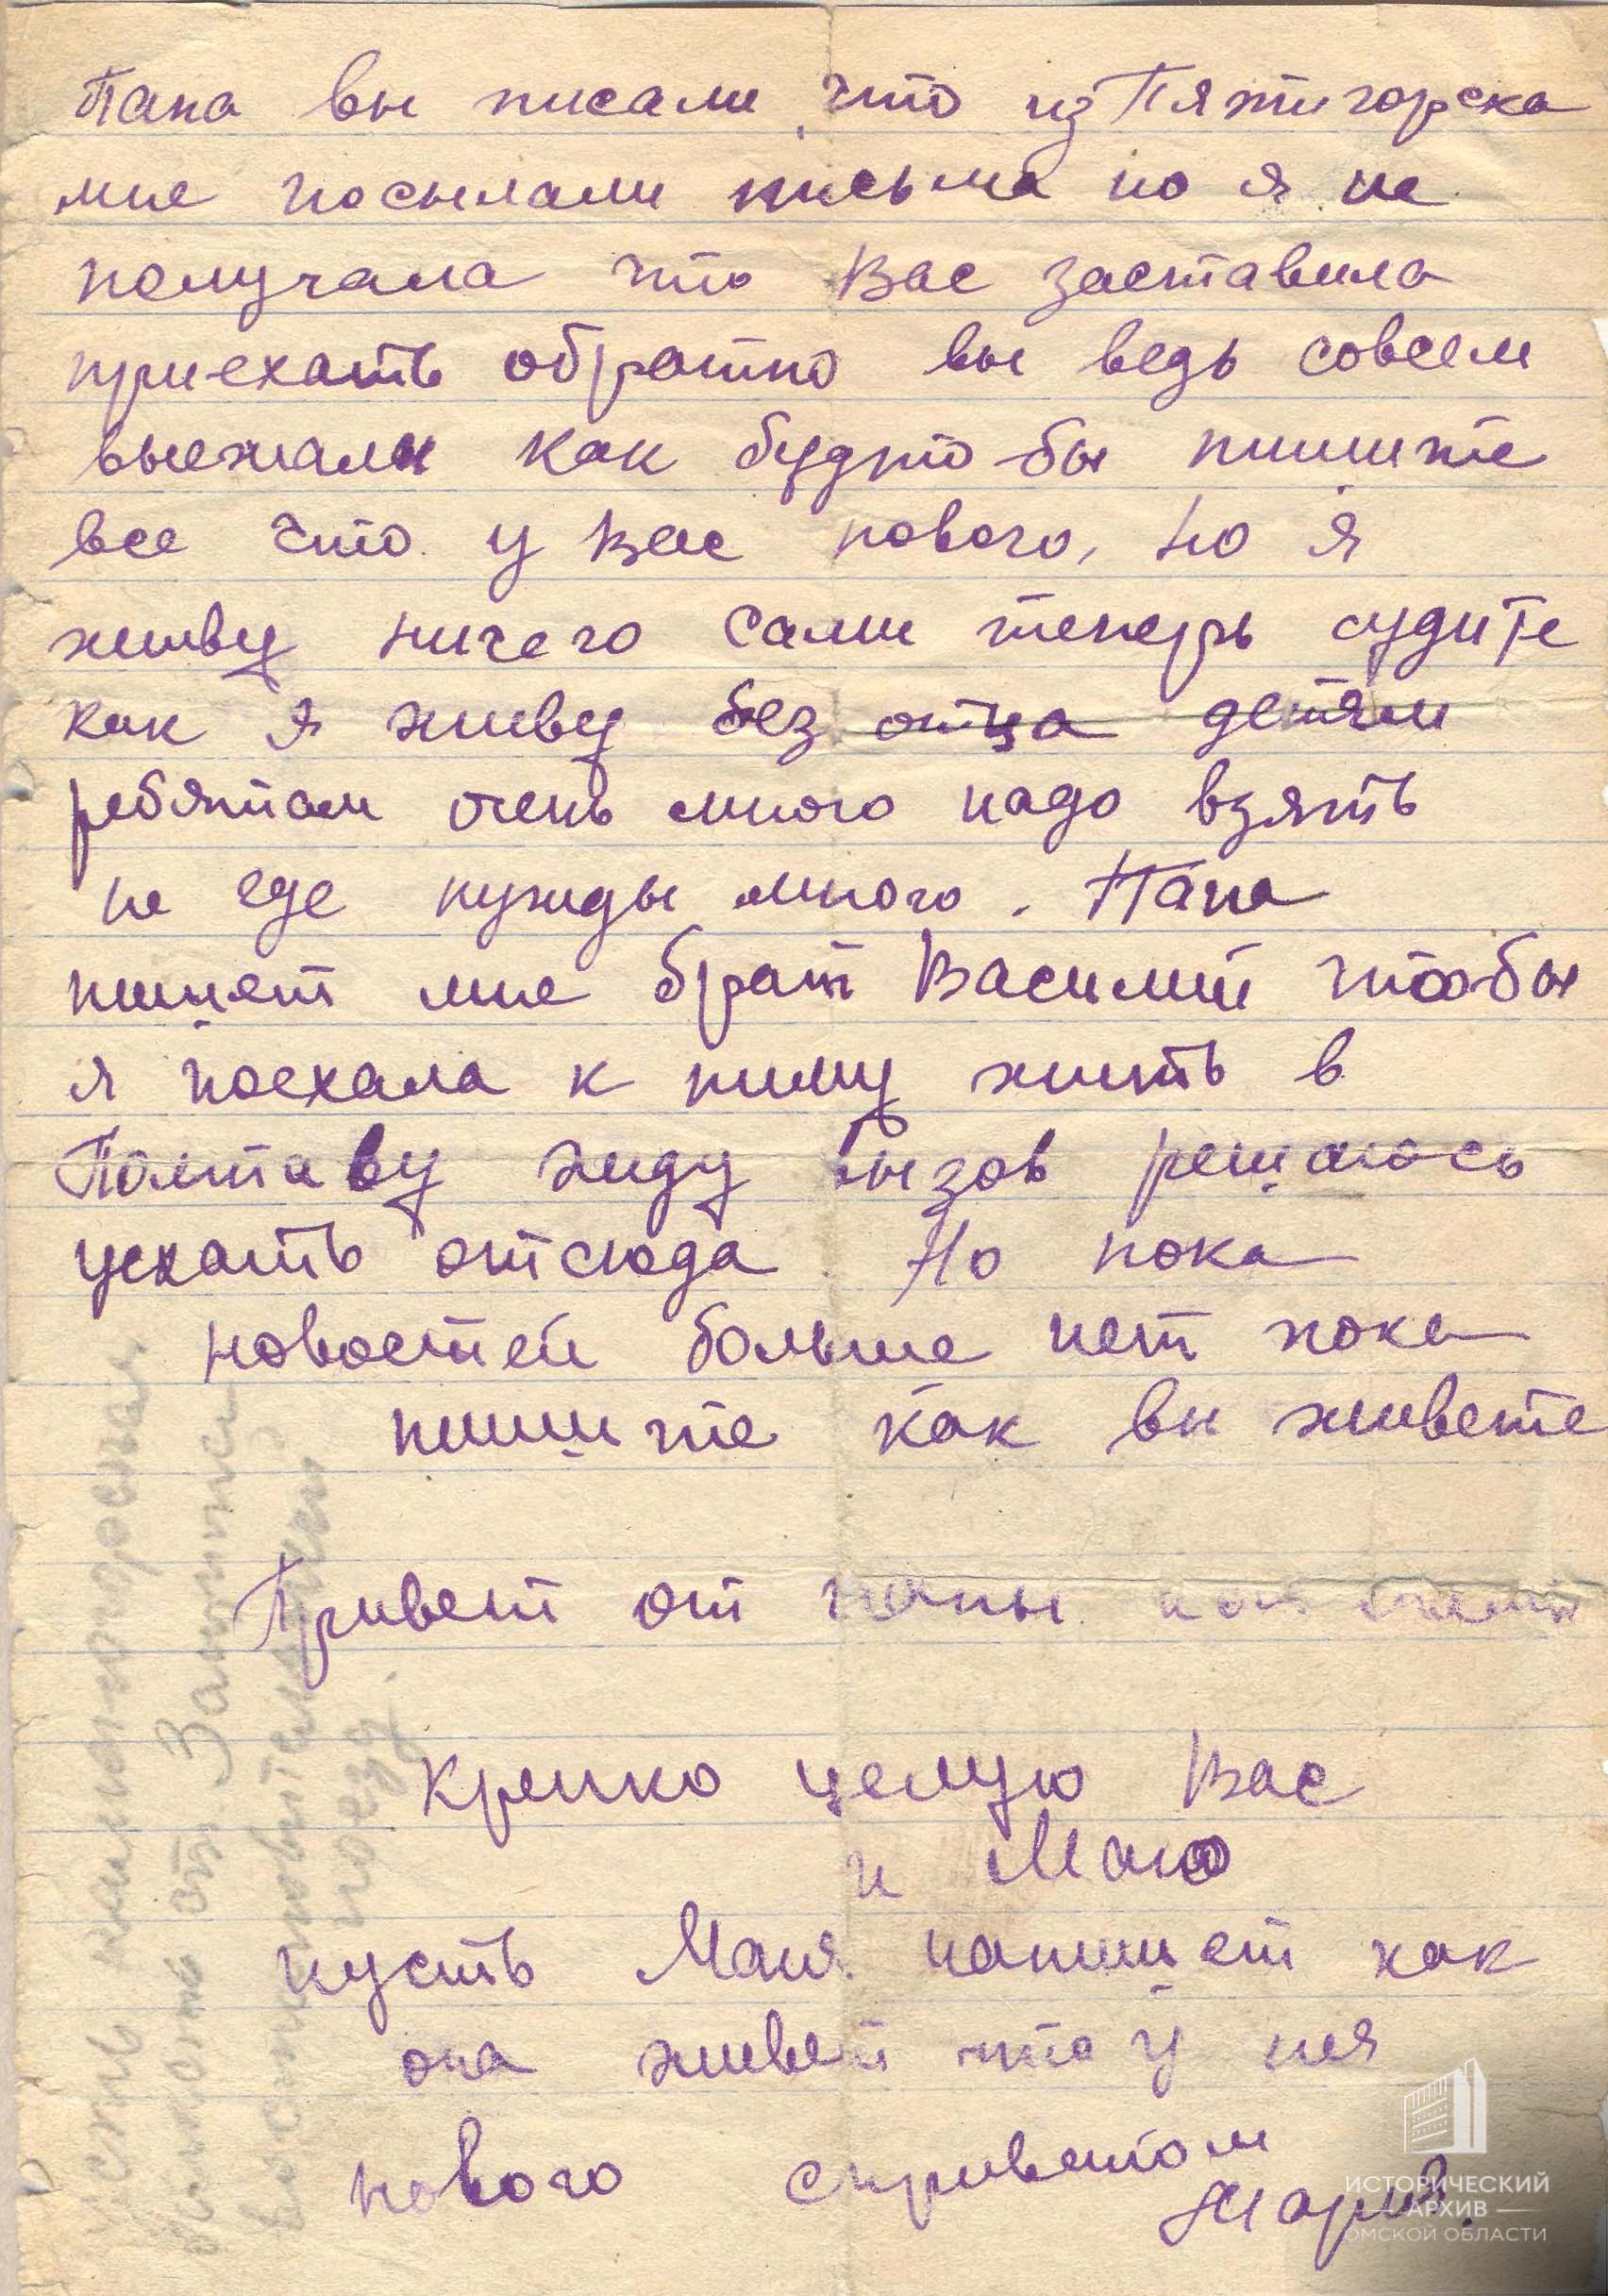 Папа вы писали, что из Пятигорска
мне посылали письма но я не
получала что Вас заставила
приехать обратно вы ведь совсем
выежали как будто-бы пишите
все что у Вас нового, но я
живу ничего сами теперь судите
как я живу без отца детям
ребятам очень много надо взять
не где нужды много. Папа
пишет мне брат Василий чтобы
я поехала к нему жить в
Полтаву жду вызов решаюсь
уехать отсюда Но пока
новостей больше нет пока
пишите как вы живете
Привет от
Крепко целую Вас
и Маю
пусть Маня напишет как
она живет что у ней
нового сприветом
Мария.
ИСТОРИЧЕСКИЙ
АРХИВ
ОМСКОЙ ОБЛАСТИ